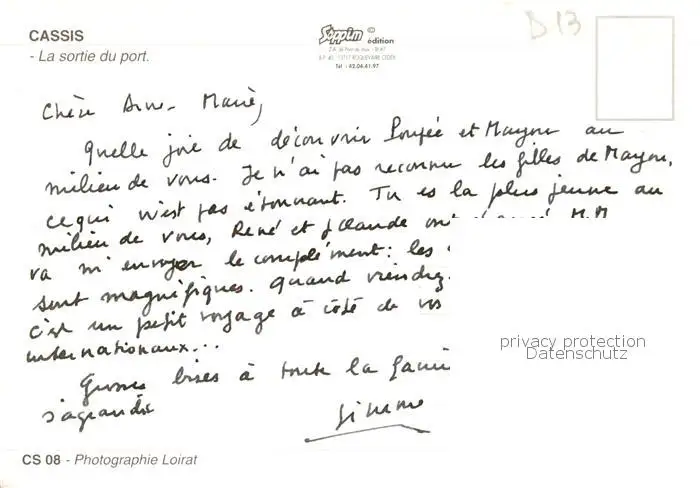 CASSIS
- La sortie du port.
Soppim © édition
Tél : 42.04.41.97
D 13
Chère Anne-Marie,
Quelle joie de découvrir Poupée et Mayou au
milieu de vous. Je n'ai pas reconnu les filles de Mayou,
ce qui n'est pas étonnant. Tu es la plus jeune au
milieu de vous, René et Yolande ont M.M
va m'envoyer le complément : les
sont magnifiques. Quand viendrez
c'est un petit voyage à côté de vos
internationaux...
Grosses bises à toute la
s'agrandit
Simone
privacy protection
Datenschutz
CS 08 - Photographie Loirat